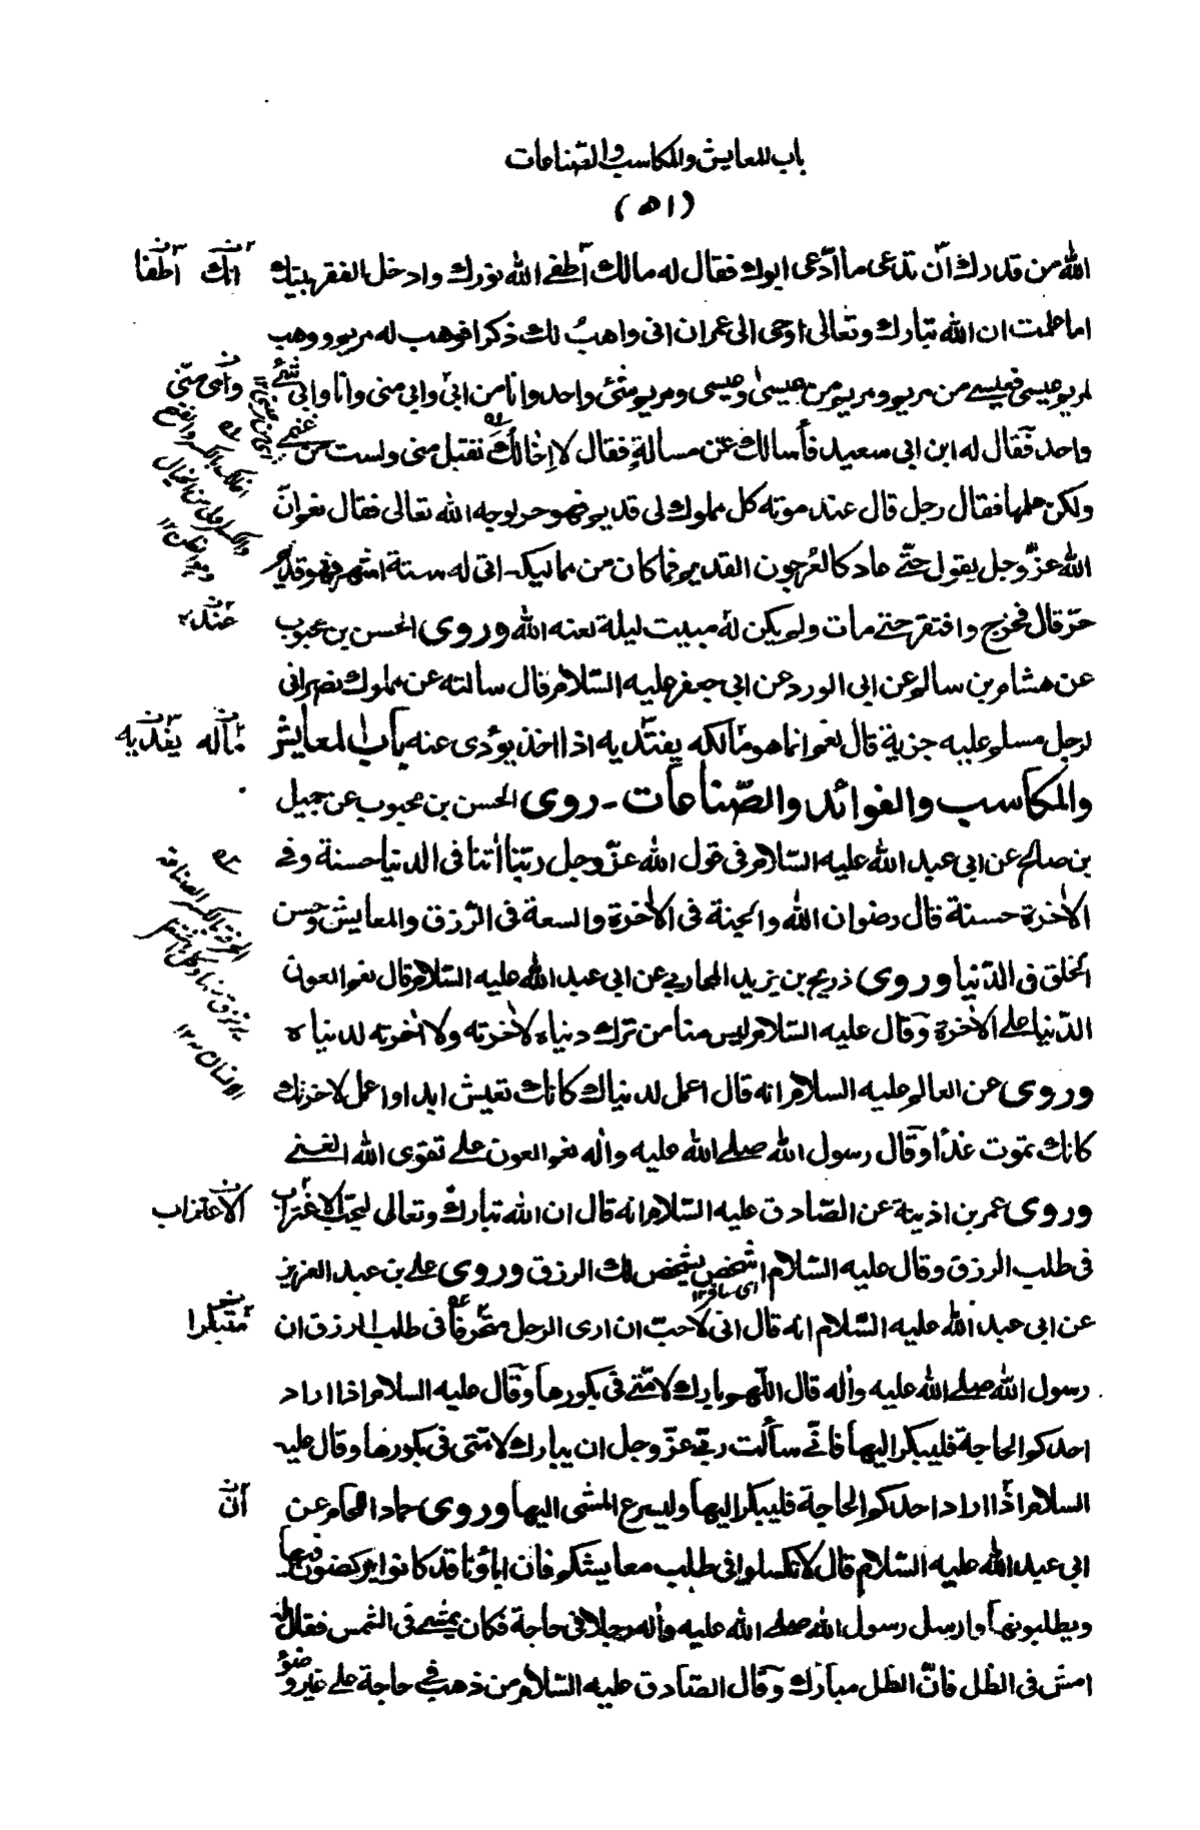 باب المعايش والمكاسب والصناعات
(۵۱)
الله من قدرك ان تدعى ما ادّعى ابوك فقال له مالك اطفى الله نورك وادخل الفقر بيتك
انك اطفا
اما علمت ان الله تبارك وتعالى اوحى الى عمران انى واهبٌ لك ذكرا فوهب له مريم ووهب
لمريم عيسى فعيسى من مريم ومريم من عيسىٰ وعيسى ومريم شئ واحد وانا من ابى وابى منى وانا وابى شئ
وابى منّى
واحد فقال له ابن ابى سعيد فأسالك عن مسألةٍ فقال لا اِخالُك تقبل منى ولست من غنمى
ولكن هلمها فقال رجل قال عند موته كل مملوك لى قديم فهو حر لوجه الله تعالى فقال نعم انّ
الله عزّوجل يقول حتّى عاد كالعُرجون القديم فما كان من مماليكه اتى له ستة اشهر فهو قديم
حرّ قال فخرج وافتقر حتى مات ولم يكن لهٔ مبيت ليلة لعنه الله وروى الحسن بن محبوب
عنده
عن هشام بن سالم عن ابى الورد عن ابى جعفر عليه السّلام قال سالته عن مملوك نصرانى
لرجل مسلم عليه جزية قال نعم انما هو مالكه يفتديه اذا اخذ يؤدى عنه باب المعايش
ماله يفديه
والمكاسب والفوائد والصّناعات ـ روى الحسن بن محبوب عن جميل
بن صالح عن ابى عبد الله عليه السّلام فى قول الله عزّوجل ربّنا اٰتنا فى الدنيا حسنة وفى
الاٰخرة حسنة قال رضوان الله والجنة فى الاٰخرة والسعة فى الرّزق والمعايش وحسن
الخلق فى الدّنيا وروى ذريح بن يزيد المحاربى عن ابى عبد الله عليه السّلام قال نعم العون
الدّنيا على الاٰخرة وقال عليه السّلام ليس منا من ترك دنياه لاٰخرته ولا اٰخرته لدنياه
وروى عن العالم عليه السلام انه قال اعمل لدنياك كانك تعيش ابدا واعمل لاخرتك
كانك تموت غدًا وقال رسول الله صلى الله عليه واٰله نعم العون على تقوى الله الغنى
وروى عمر بن اذينة عن الصّادق عليه السّلام انه قال ان الله تبارك وتعالى ليحب الاغتراب
الاغتراب
فى طلب الرزق وقال عليه السّلام اشخص يشخص لك الرزق وروى على بن عبد العزيز
اى سافر ۱۲
عن ابى عبد الله عليه السّلام انه قال انى لاحبّ ان ارى الرجل متحرفًا فى طلب الرزق ان
متبكرا
رسول الله صلى الله عليه واٰله قال اللّهم بارك لامّتى فى بكورها وقال عليه السلام اذا اراد
احدكم الحاجة فليبكر اليها فانّى سألت ربّى عزّوجل ان يبارك لامّتى فى بكورها وقال عليه
السلام اذا اراد احدكم الحاجة فليبكر اليها وليسرع المشى اليها وروى حماد اللحام عن
انّ
ابى عبد الله عليه السّلام قال لا تكسلوا فى طلب معايشكم فان اباؤنا قد كانوا يركضون فيها
ويطلبونها وارسل رسول الله صلى الله عليه واٰله رجلا فى حاجة فكان يمشى فى الشمس فقال له
امش فى الظل فانّ الظل مبارك وقال الصّادق عليه السّلام من ذهب فى حاجة على غير وضوء